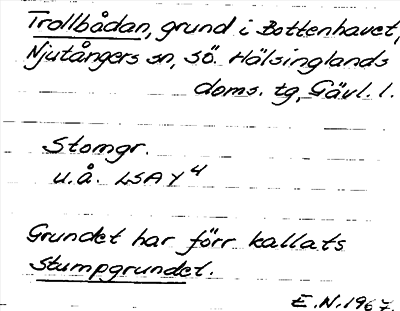 Trollbådan, grund i Bottenhavet,
Njutångers sn, SÖ. Hälsinglands
doms. tg, Gävl. l.
Stomgr.
u.å. LSA Y4
Grundet har förr kallats
Stumpgrundet.
E.N. 1967.